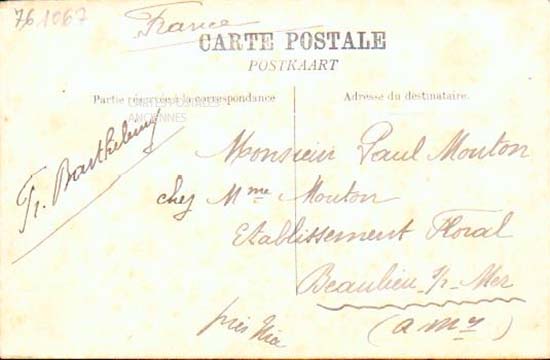 76 1067
France
CARTE POSTALE
POSTKAART
Partie réservée à la correspondance
Adresse du destinataire.
CARTES POSTALES
ANCIENNES
Fr. Barthelemy
Monsieur Paul Mouton
chez Mme Mouton
Etablissement Floral
Beaulieu s/ Mer
(A My)
près Nice